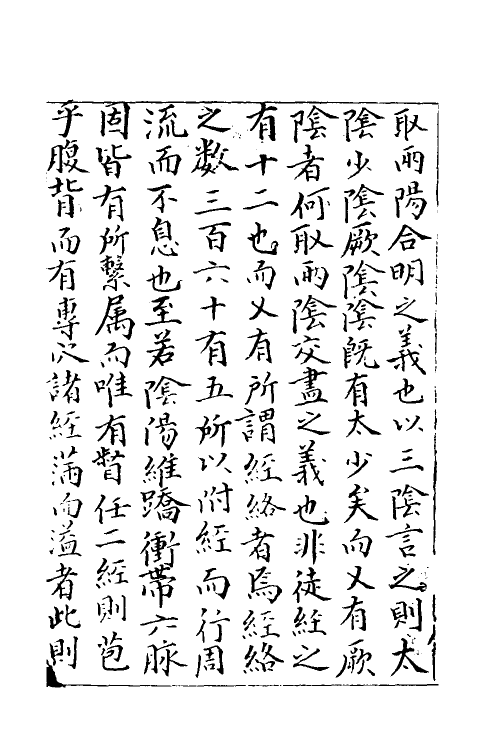 取兩陽合明之義也以三陰言之則太
陰少陰厥陰陰既有太少矣而又有厥
陰者何取兩陰交盡之義也非徒經之
有十二也而又有所謂經絡者焉經絡
之數三百六十有五所以附經而行周
流而不息也至若陰陽維蹻衝帶六脉
固皆有所繫属而唯有督任二經則苞
乎腹背而有專穴諸經滿而溢者此則